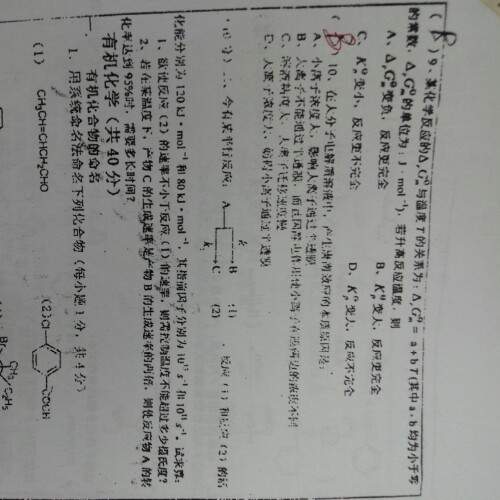 (B) 9、某化学反应的ΔrGm^Θ与温度T的关系为：ΔrGm^Θ = a+bT(其中a、b均为小于零
的常数，ΔrGm^Θ的单位为：J·mol⁻¹)，若升高反应温度，则
A、ΔrGm^Θ变负，反应更完全 B、Kp^Θ变大，反应更完全
C、Kp^Θ变小，反应更不完全 D、Kp^Θ变大，反应不完全
(B) 10、在大分子电解质溶液中，产生唐南效应的本质原因是：
A、小离子浓度大，影响大离子通过半透膜
B、大离子不能通过半透膜，而且因静电作用使小离子在膜两边的浓度不同
C、溶液粘度大，大离子迁移速度慢
D、大离子浓度大，妨碍小离子通过半透膜
二、今有某平行反应：A B (1)
C (2)
反应(1)和反应(2)的活
化能分别为120 kJ·mol⁻¹和80 kJ·mol⁻¹，其指前因子分别为10¹³ s⁻¹和10¹¹ s⁻¹，试求算：
1、欲使反应(2)的速率不小于反应(1)的速率，则需控制温度不能超过多少摄氏度？
2、若在某温度下，产物C的生成速率是产物B的生成速率的两倍，则使反应物A的转
化率达到95%时，需要多长时间？
有机化学（共40分）
有机化合物的命名
1、用系统命名法命名下列化合物（每小题1分，共4分）
(1) CH₃CH=CHCH₂CHO (2) Cl COOH
Br CH₃ C₂H₅